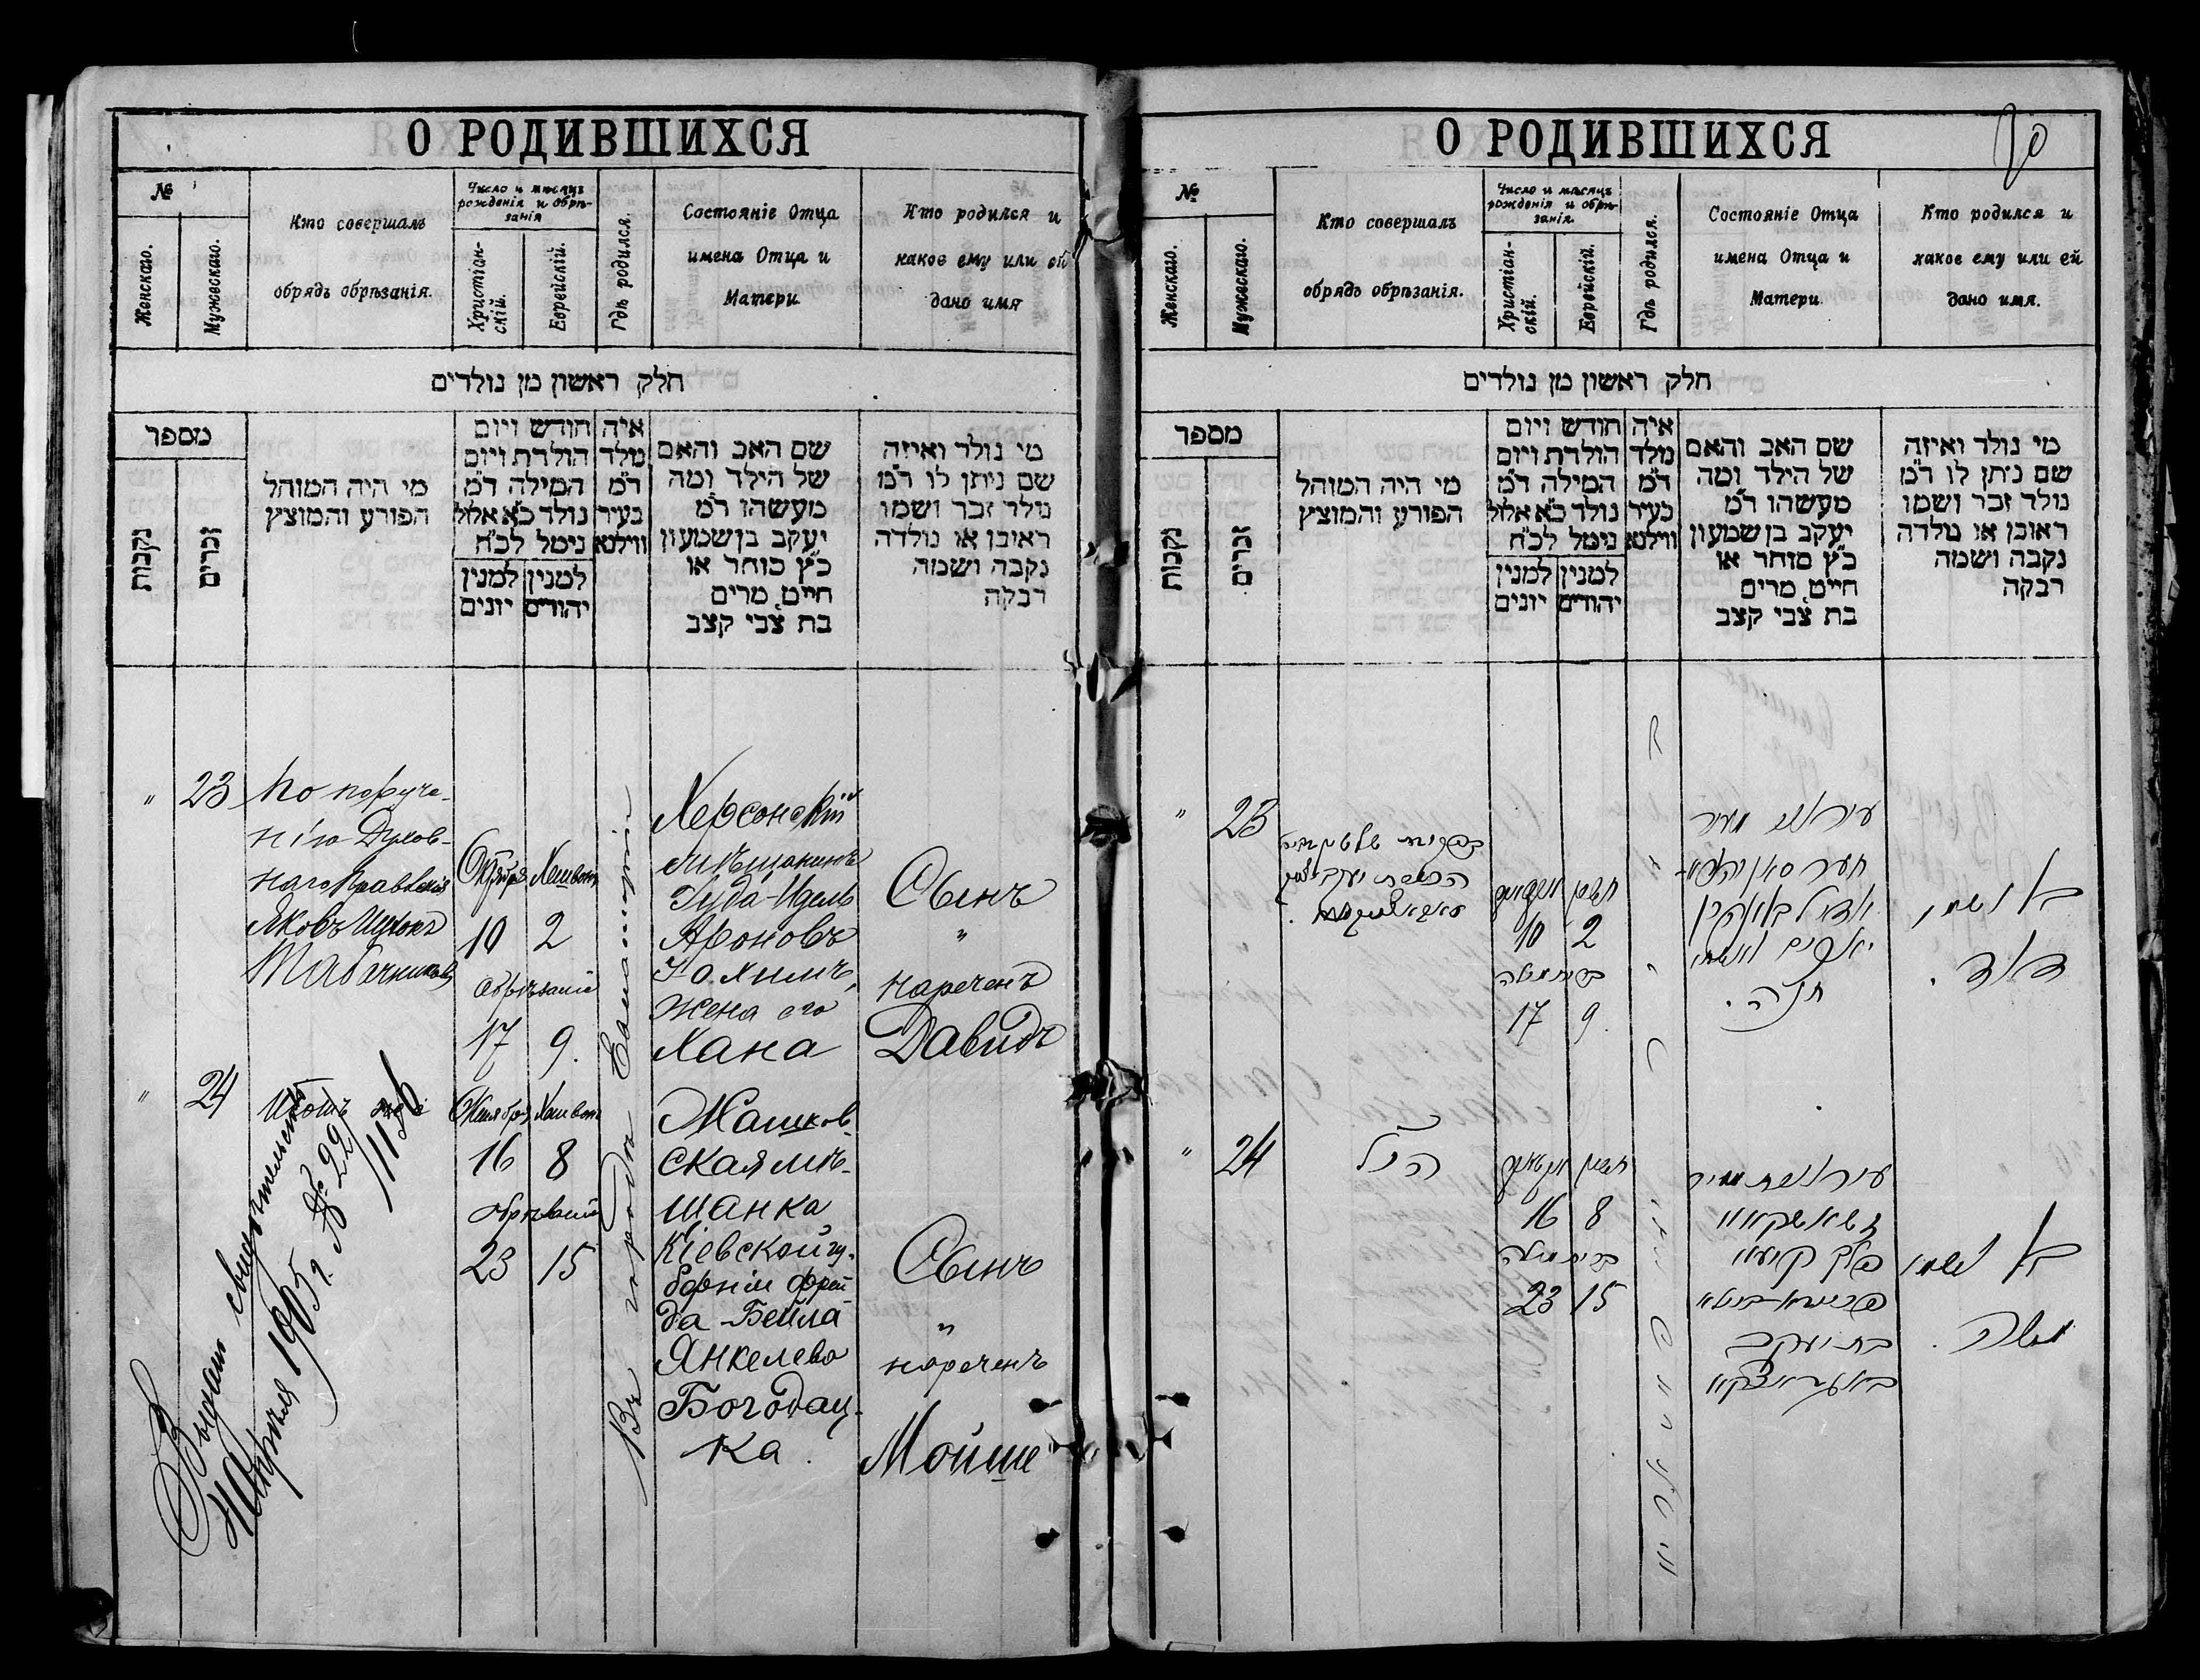 О РОДИВШИХСЯ
№
Женскаго.
Мужескаго.
Кто совершалъ
обрядъ обрѣзанія.
Число и мѣсяцъ
рожденія и обрѣ-
занія
Христіан-
скій.
Еврейскій.
Гдѣ родился.
Состояніе Отца
имена Отца и
Матери
Кто родился и
какое ему или ей
дано имя
חלק ראשון מן נולדים
מספר
נקבות
זכרים
מי היה המוהל
הפורע והמוצץ
חודש ויום
הולדת ויום
המילה ד״מ
נולד כ״א אלול
נימל לכ״ח
למנין למנין
יהודים יונים
איה
נולד
ד״מ
בעיר
ווילנא
שם האב והאם
של הילד ומה
מעשהו ד״מ
יעקב בן שמעון
כ״ץ סוחר או
חייט, מרים
בת צבי קצב
מי נולד ואיזה
שם ניתן לו ד״מ
נולד זכר ושמו
ראובן או נולדה
נקבה ושמה
רבקה
" 23
По поруче-
нію Духов-
наго Правленія
Яковъ Ицковъ
Табачниковъ
Октября Хешвонъ
10 2
обрѣзаніе
17 9.
Въ городѣ
Херсонскій
мѣщанинъ
Іуда-Идель
Ароновъ
жена его
Хана
Сынъ
"
нареченъ
Давидъ
" 24
Октября Хешвонъ
16 8
обрѣзаніе
23 15
Машков-
ская мѣ-
щанка
Кіевской гу-
берніи Фрей
да-Бейла
Янкелева
Богодац-
ка.
Сынъ
"
нареченъ
Мойше
Выдано свидѣтельство
Апрѣля 1905 г. № 22
/1136
О РОДИВШИХСЯ
№
Женскаго.
Мужескаго.
Кто совершалъ
обрядъ обрѣзанія.
Число и мѣсяцъ
рожденія и обрѣ-
занія.
Христіан-
скій.
Еврейскій.
Гдѣ родился.
Состояніе Отца
имена Отца и
Матери
Кто родился и
какое ему или ей
дано имя.
חלק ראשון מן נולדים
מספר
נקבות
זכרים
מי היה המוהל
הפורע והמוצץ
חודש ויום
הולדת ויום
המילה ד״מ
נולד כ״א אלול
נימל לכ״ח
למנין למנין
יהודים יונים
איה
נולד
ד״מ
בעיר
ווילנא
שם האב והאם
של הילד ומה
מעשהו ד״מ
יעקב בן שמעון
כ״ץ סוחר או
חייט, מרים
בת צבי קצב
מי נולד ואיזה
שם ניתן לו ד״מ
נולד זכר ושמו
ראובן או נולדה
נקבה ושמה
רבקה
" 23
10 2
17 9.
חנה.
בן ושמו
דוד.
" 24
הנ״ל
16 8
23 15
בת יעקב
בן ושמו
משה.